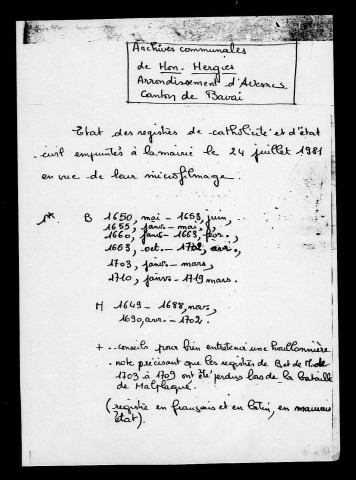 Archives communales
de Hon-Hergies
Arrondissement d'Avesnes
Canton de Bavai
Etat des registres de catholicité et d'état
civil empruntés à la mairie le 24 juillet 1981
en vue de leur microfilmage.
B 1650, mai - 1653, juin,
1655, janv. - mai,
1660, janv. - 1663, fév.,
1663, oct. - 1702, avr.,
1703, janv. - mars,
1710, janv. - 1719 mars.
M 1649 - 1688, nov.,
1690, avr. - 1702.
+ conseils pour bien entretenir une houblonnière
note précisant que les registres de B et de M de
1703 à 1709 ont été perdus lors de la bataille
de Malplaquet.
(registre en français et en latin, en mauvais
état).